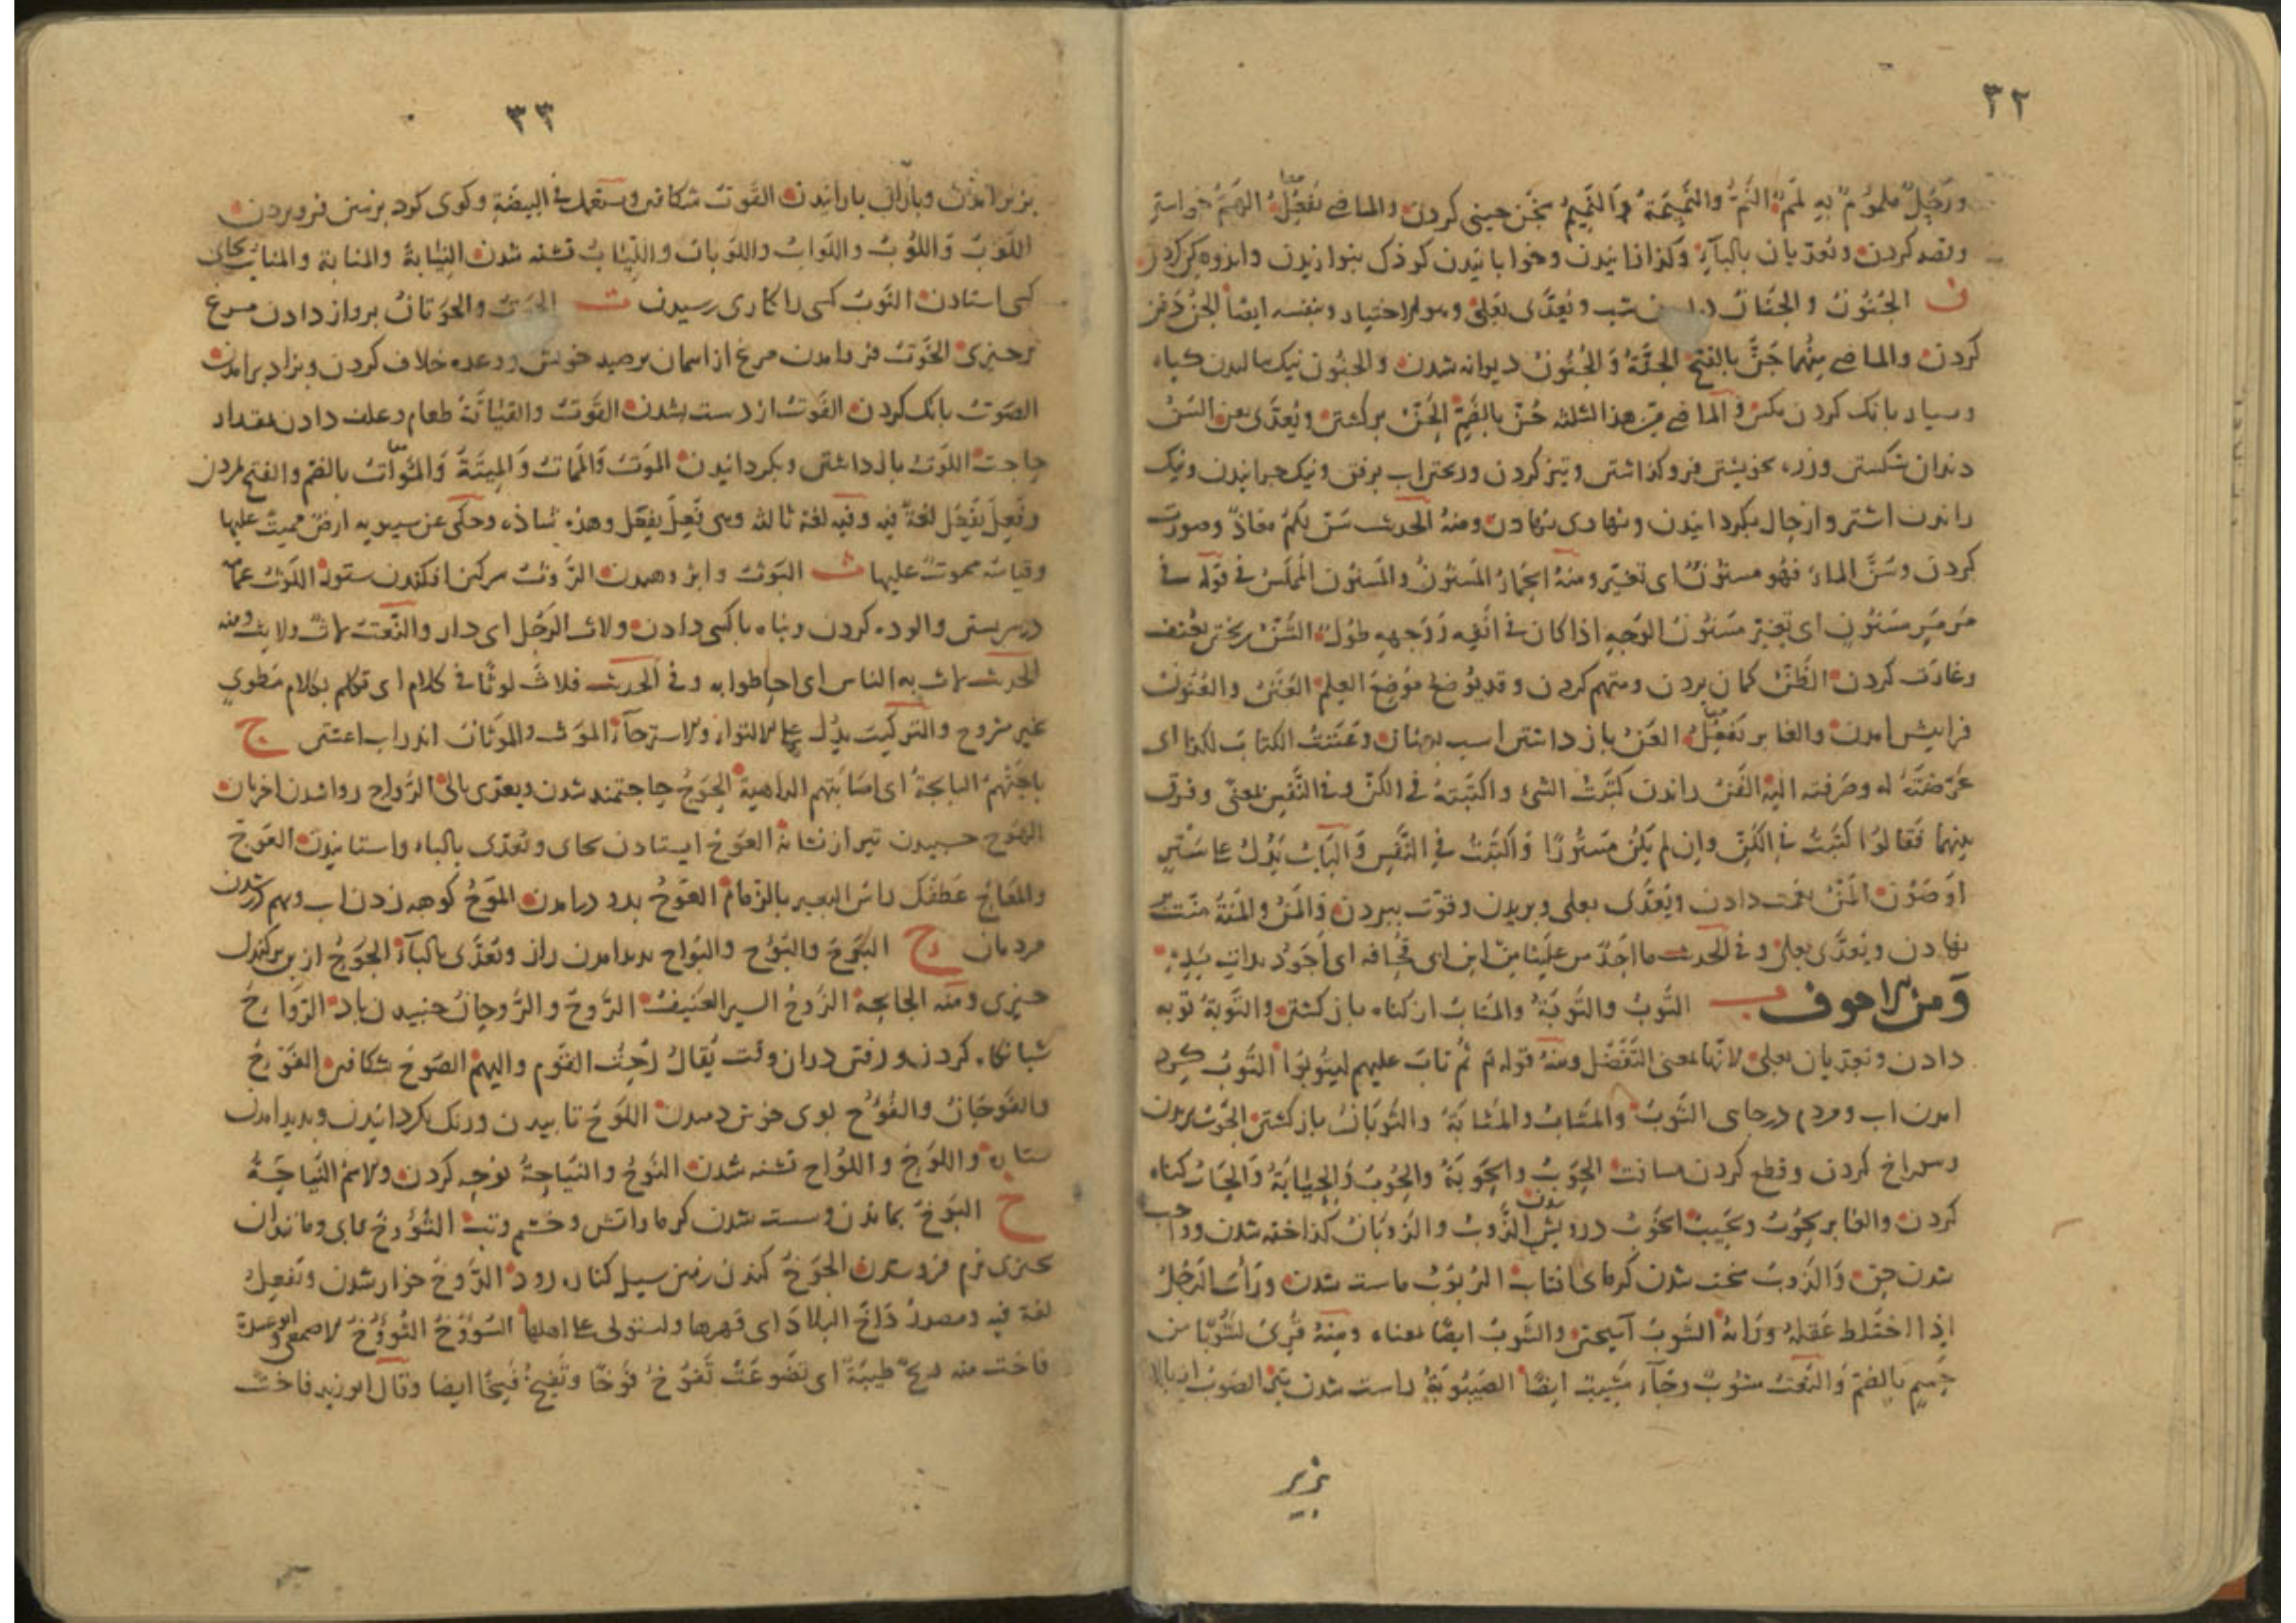 ٣٢
ورجل ملموم به لمم النم والنميمة والنميم سخن چینی کردن والماضی نفعل الهم خواستن
وقصد کردن وتعدیان بالباء وگدازانیدن وخوابانیدن کودک بنوازیدن واندوهگن کردن
ن الجنون والجنان شب ویعدی بعلی وهو الاختیار وبنفسه ایضا الجن دفن
کردن والماضی منهما جن بالفتح الجنة والجنون دیوانه شدن والجنون نیک بالیدن گیاه
وبسیار بانگ کردن مگس والماضی من هذا الثلثه جن بالضم برگشتن ویعدی بعن السن
دندان شکستن وزره بخویشتن فروگذاشتن وتیز کردن وریختن آب برفق ونیک چرانیدن ونیک
راندن اشتر واز حال بگردانیدن ونهادی نهادن ومنه الحدیث سن لکم معاذ وصورت
کردن وسن الماء فهو مسنون ای تغیر ومنه الحمأ المسنون والمسنون المملس فی قوله فی
مرمر مسنون ای تغیر مسنون الوجه اذا کان فی انفه ووجهه طول الشن ریختن بعنف
وغارت کردن الظن گمان بردن ومتهم کردن وقد یوضع موضع العلم العنن والعنون
فرا پیش آمدن والغابر تفعل العن باز داشتن اسب بعنان وعننت الکتاب لکذا ای
عرضته له وصرفته الیه الفن راندن کننت الشئ واکننته فی الکن وفی النفس بمعنی وفرق
بینهما فقالوا کننت فی الکن وان لم یکن مستورا واکننت فی النفس والباب یدل علی ستر
او صون المن نعمت دادن ویعدی بعلی وبریدن وقوت ببردن والمن والمنة منت
نهادن ویعدی بعلی وفی الحدیث ما احد من علینا من ابن ابی قحافه ای اجود بذات یده
ومن الاجوف ب التوب والتوبة والمتاب از گناه باز گشتن والتوبة توبه
دادن وتعدیان بعلی لانها بمعنی التفضل ومنه قوله ثم تاب علیهم لیتوبوا الثوب گرد
آمدن آب ومردم در جای الثوب والمثاب والمثابة والثوبان باز گشتن الجوب بریدن
وسوراخ کردن وقطع کردن مسافت الحوب والحوبة والحوب والحیابة والحاب گناه
کردن والغابر یحوب ویحیب الحوب درویش شدن الذوب والذوبان گداخته شدن وواجب
شدن حق والذوب سخت شدن گرمای افتاب الروب ماست شدن وراب الرجل
اذا اختلط عقله ورایه الشوب آمیختن والشوب ایضا بمعناه ومنه قری لشوبا من
حمیم بالضم والنعت مشوب وجاء مشیب ایضا الصیبوبة راست شدن تیر الصوب از بالا
بزیر
٣٣
بزیر آمدن وباران بارانیدن القوب شکافتن ویستعمل فی البیضة وگوی گود بزمین فروبردن
اللوب واللوب واللواب واللوبان واللیاب تشنه شدن النیابة والمنابة والمناب بجای
کسی استادن النوب کسی را کاری رسیدن ت والحوتان پرواز دادن مرغ
بر چیزی الخوت فرود آمدن مرغ از آسمان بر صید خویش ووعده خلاف کردن وبزاد برآمدن
الصوت بانگ کردن الفوت از دست بشدن القوت والقیاتة طعام وعلف دادن مقدار
حاجت اللوت باز داشتن وبگردانیدن الموت والممات والمیتة والموات بالضم والفتح مردن
وفعل یفعل لغة فیه وفیه لغة ثالثه وهی فعل یفعل وهذه شاذه وحکی عن سیبویه ارض ممیت علیها
وقیاسه مموت علیها ث البوث وابژوهیدن الروث سرگین افکندن ستور اللوث عمامه
در سر بستن وآلوده کردن وپناه با کسی دادن ولاث الرجل ای دار والنعت لاث ولایث ومنه
الحدیث لاث به الناس ای احاطوا به وفی الحدیث فلاث لوثا فی کلام ای تکلم بکلام مطوی
غیر مشروح والترکیب یدل علی الالتواء والاسترخاء الموث والموثان اندر آب آغشتن ج
باجتهم البایجة ای اصابتهم الداهیة الحوج حاجتمند شدن ویعدی بالی الرواج روا شدن اخریان
العوج ایستادن بجای وتعدی بالباء واستانیدن العوج
والمعاج عطفک راس البعیر بالزمام الموج کوهه زدن آب وبهم در شدن
مردمان ح البوح والبؤوح والبواح پدید آمدن راز وتعدی بالباء الجوح از بن برکندن
چیزی ومنه الجایحة الذوح السیر العنیف الروح والروحان جنبیدن باد الرواح
شبانگاه کردن ورفتن در آن وقت یقال رحت القوم والیهم الصوح شکافتن الفوح
والفوحان والفؤوح بوی خوش دمیدن اللوح تابیدن ورنگ بگردانیدن وپدید آمدن
ستاره واللوح واللواح تشنه شدن النوح والنیاحة نوحه کردن والاسم النیاحة
خ البوخ بماندن وسست شدن گرما وآتش وخشم وتب
چیزی نرم فرو شدن الجوخ کندن زمین سیل کناره رود الدوخ خوار شدن وتفعیل
لغة فیه ومصدر داخ البلاد ای قهرها واستولی علی اهلها الاصمعی وابو عبیدة
فاخت منه ریح طیبة ای تضوعت تفوخ فوخا وتفیخ فیخا ایضا وقال ابو زید فاخت